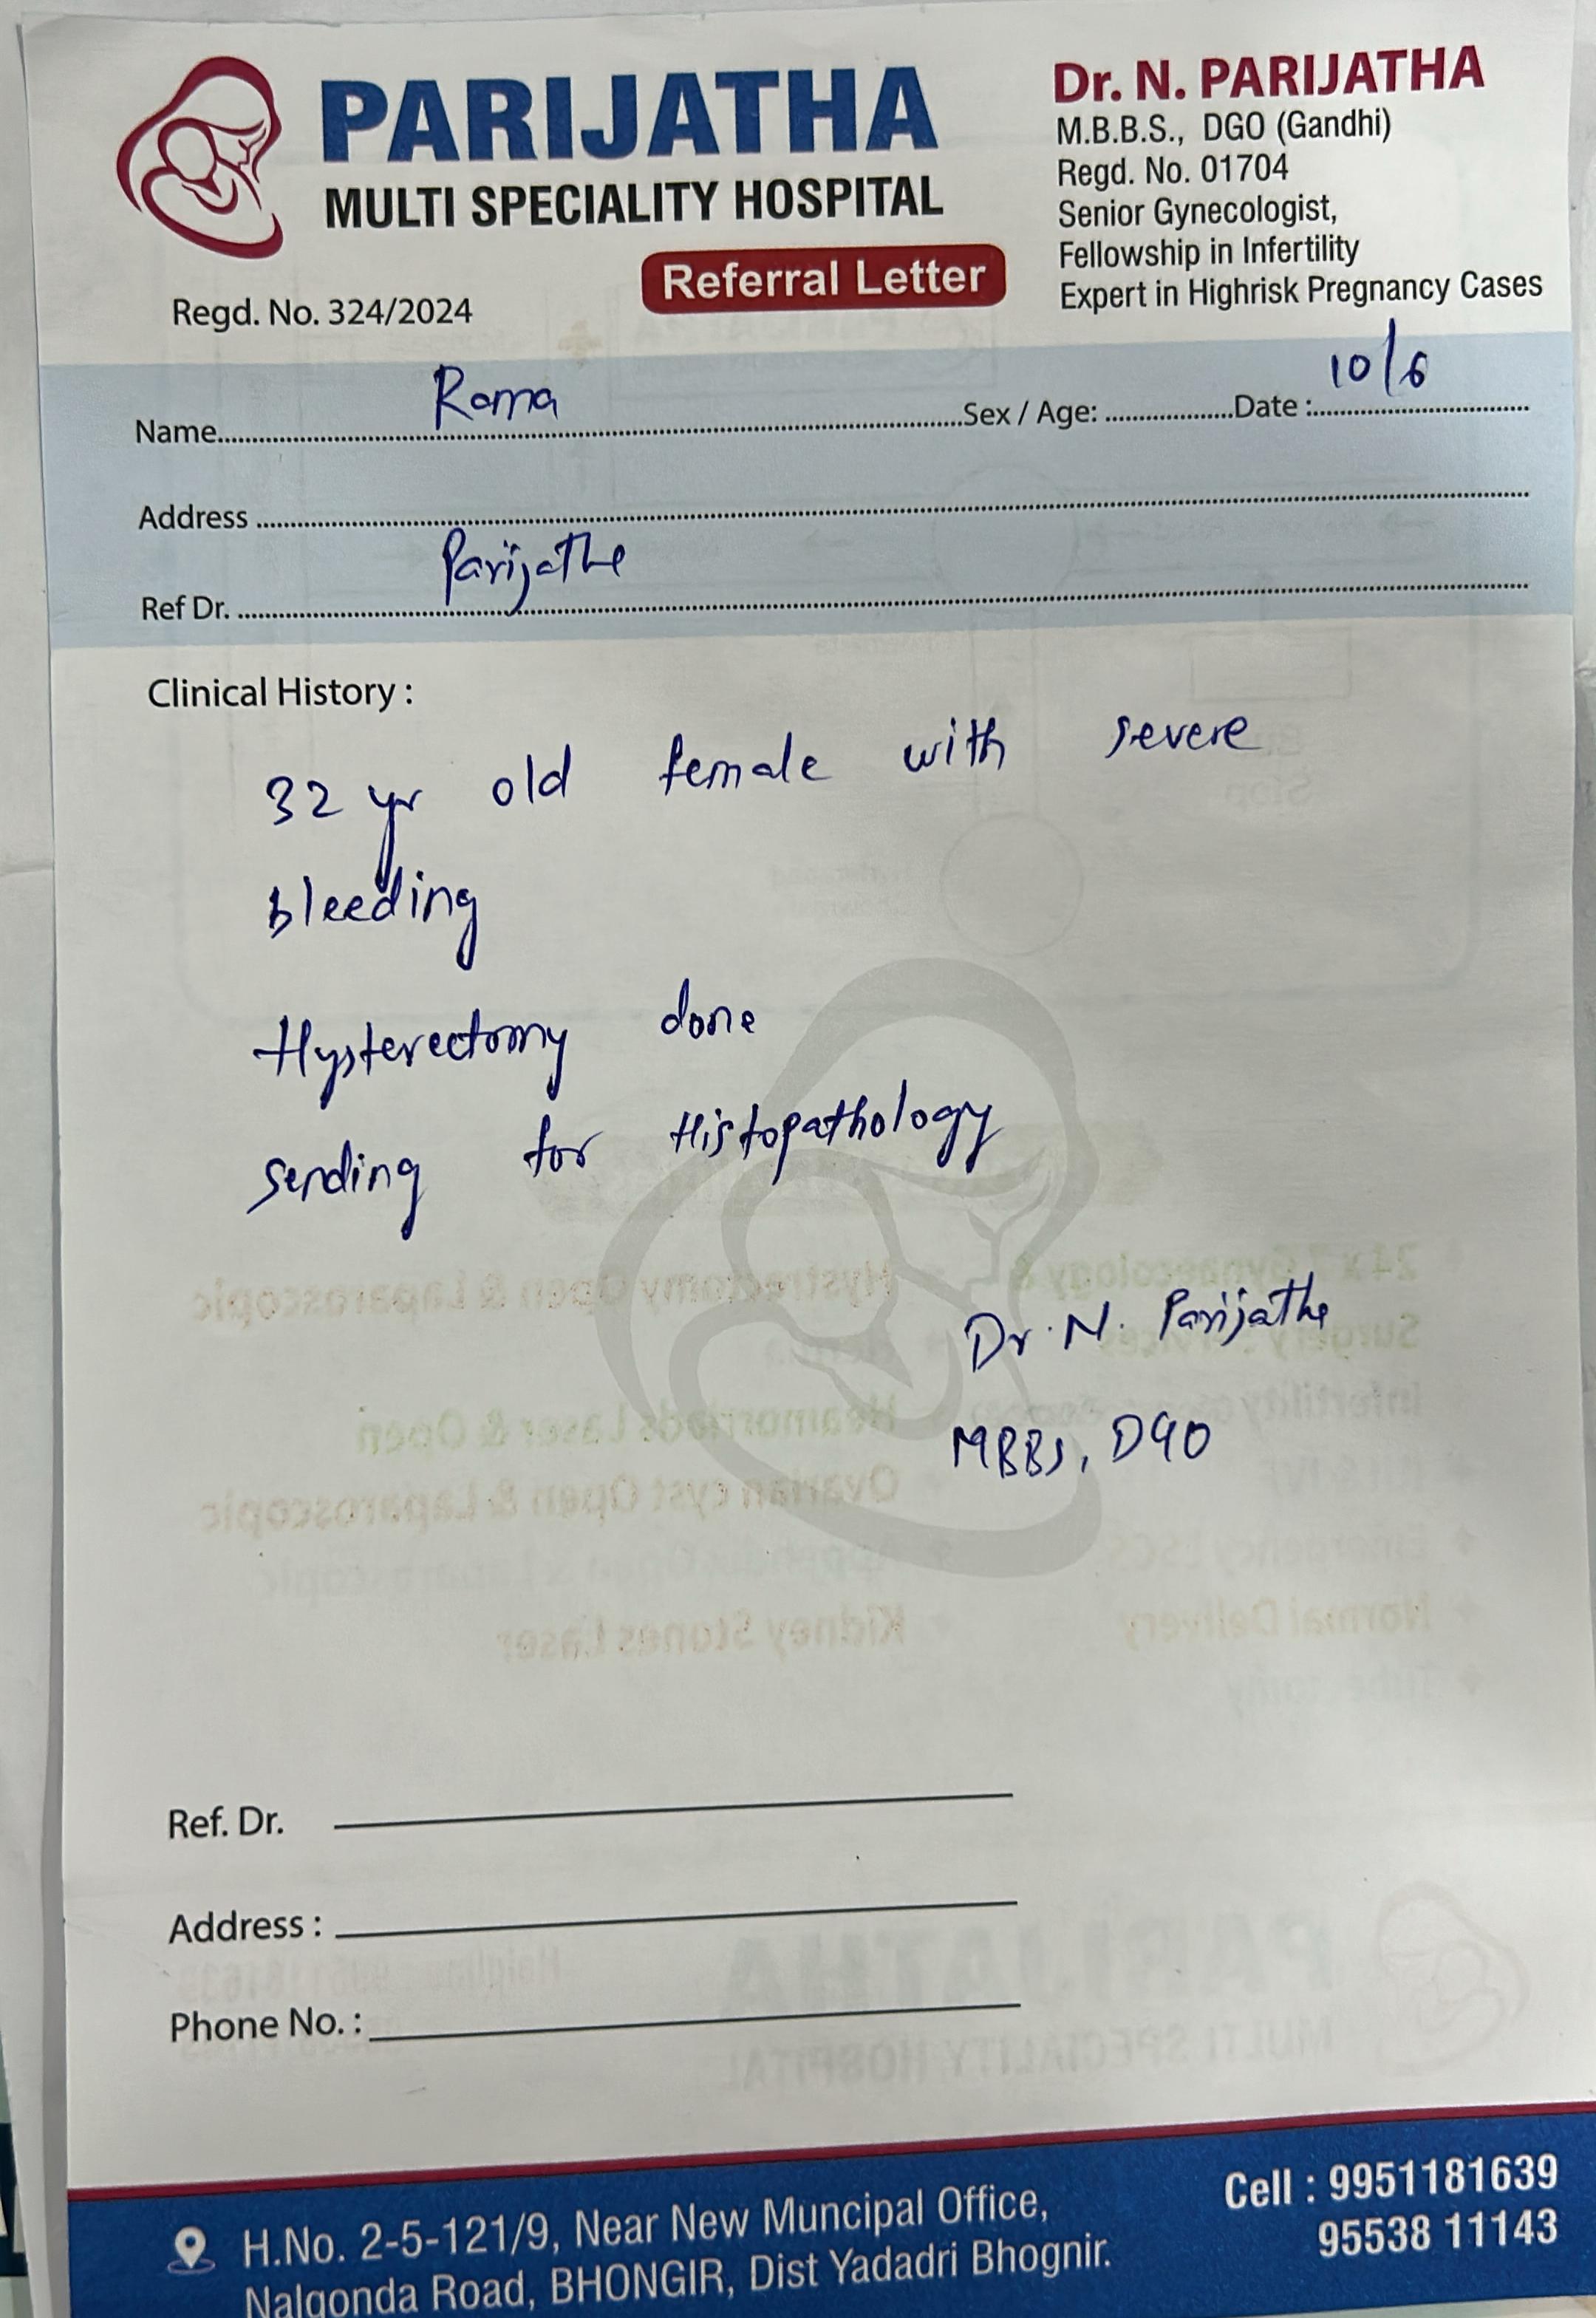 PARIJATHA
MULTI SPECIALITY HOSPITAL
Referral Letter
Regd. No. 324/2024
Dr. N. PARIJATHA
M.B.B.S., DGO (Gandhi)
Regd. No. 01704
Senior Gynecologist,
Fellowship in Infertility
Expert in Highrisk Pregnancy Cases
Name Rama Sex / Age: Date : 10/6
Address
Ref Dr. Parijatha
Clinical History :
32 yr old female with severe
bleeding
Hysterectomy done
sending for Histopathology
Dr. N. Parijatha
MBBS, DGO
Ref. Dr.
Address :
Phone No. :
H.No. 2-5-121/9, Near New Muncipal Office,
Nalgonda Road, BHONGIR, Dist Yadadri Bhognir.
Cell : 9951181639
95538 11143